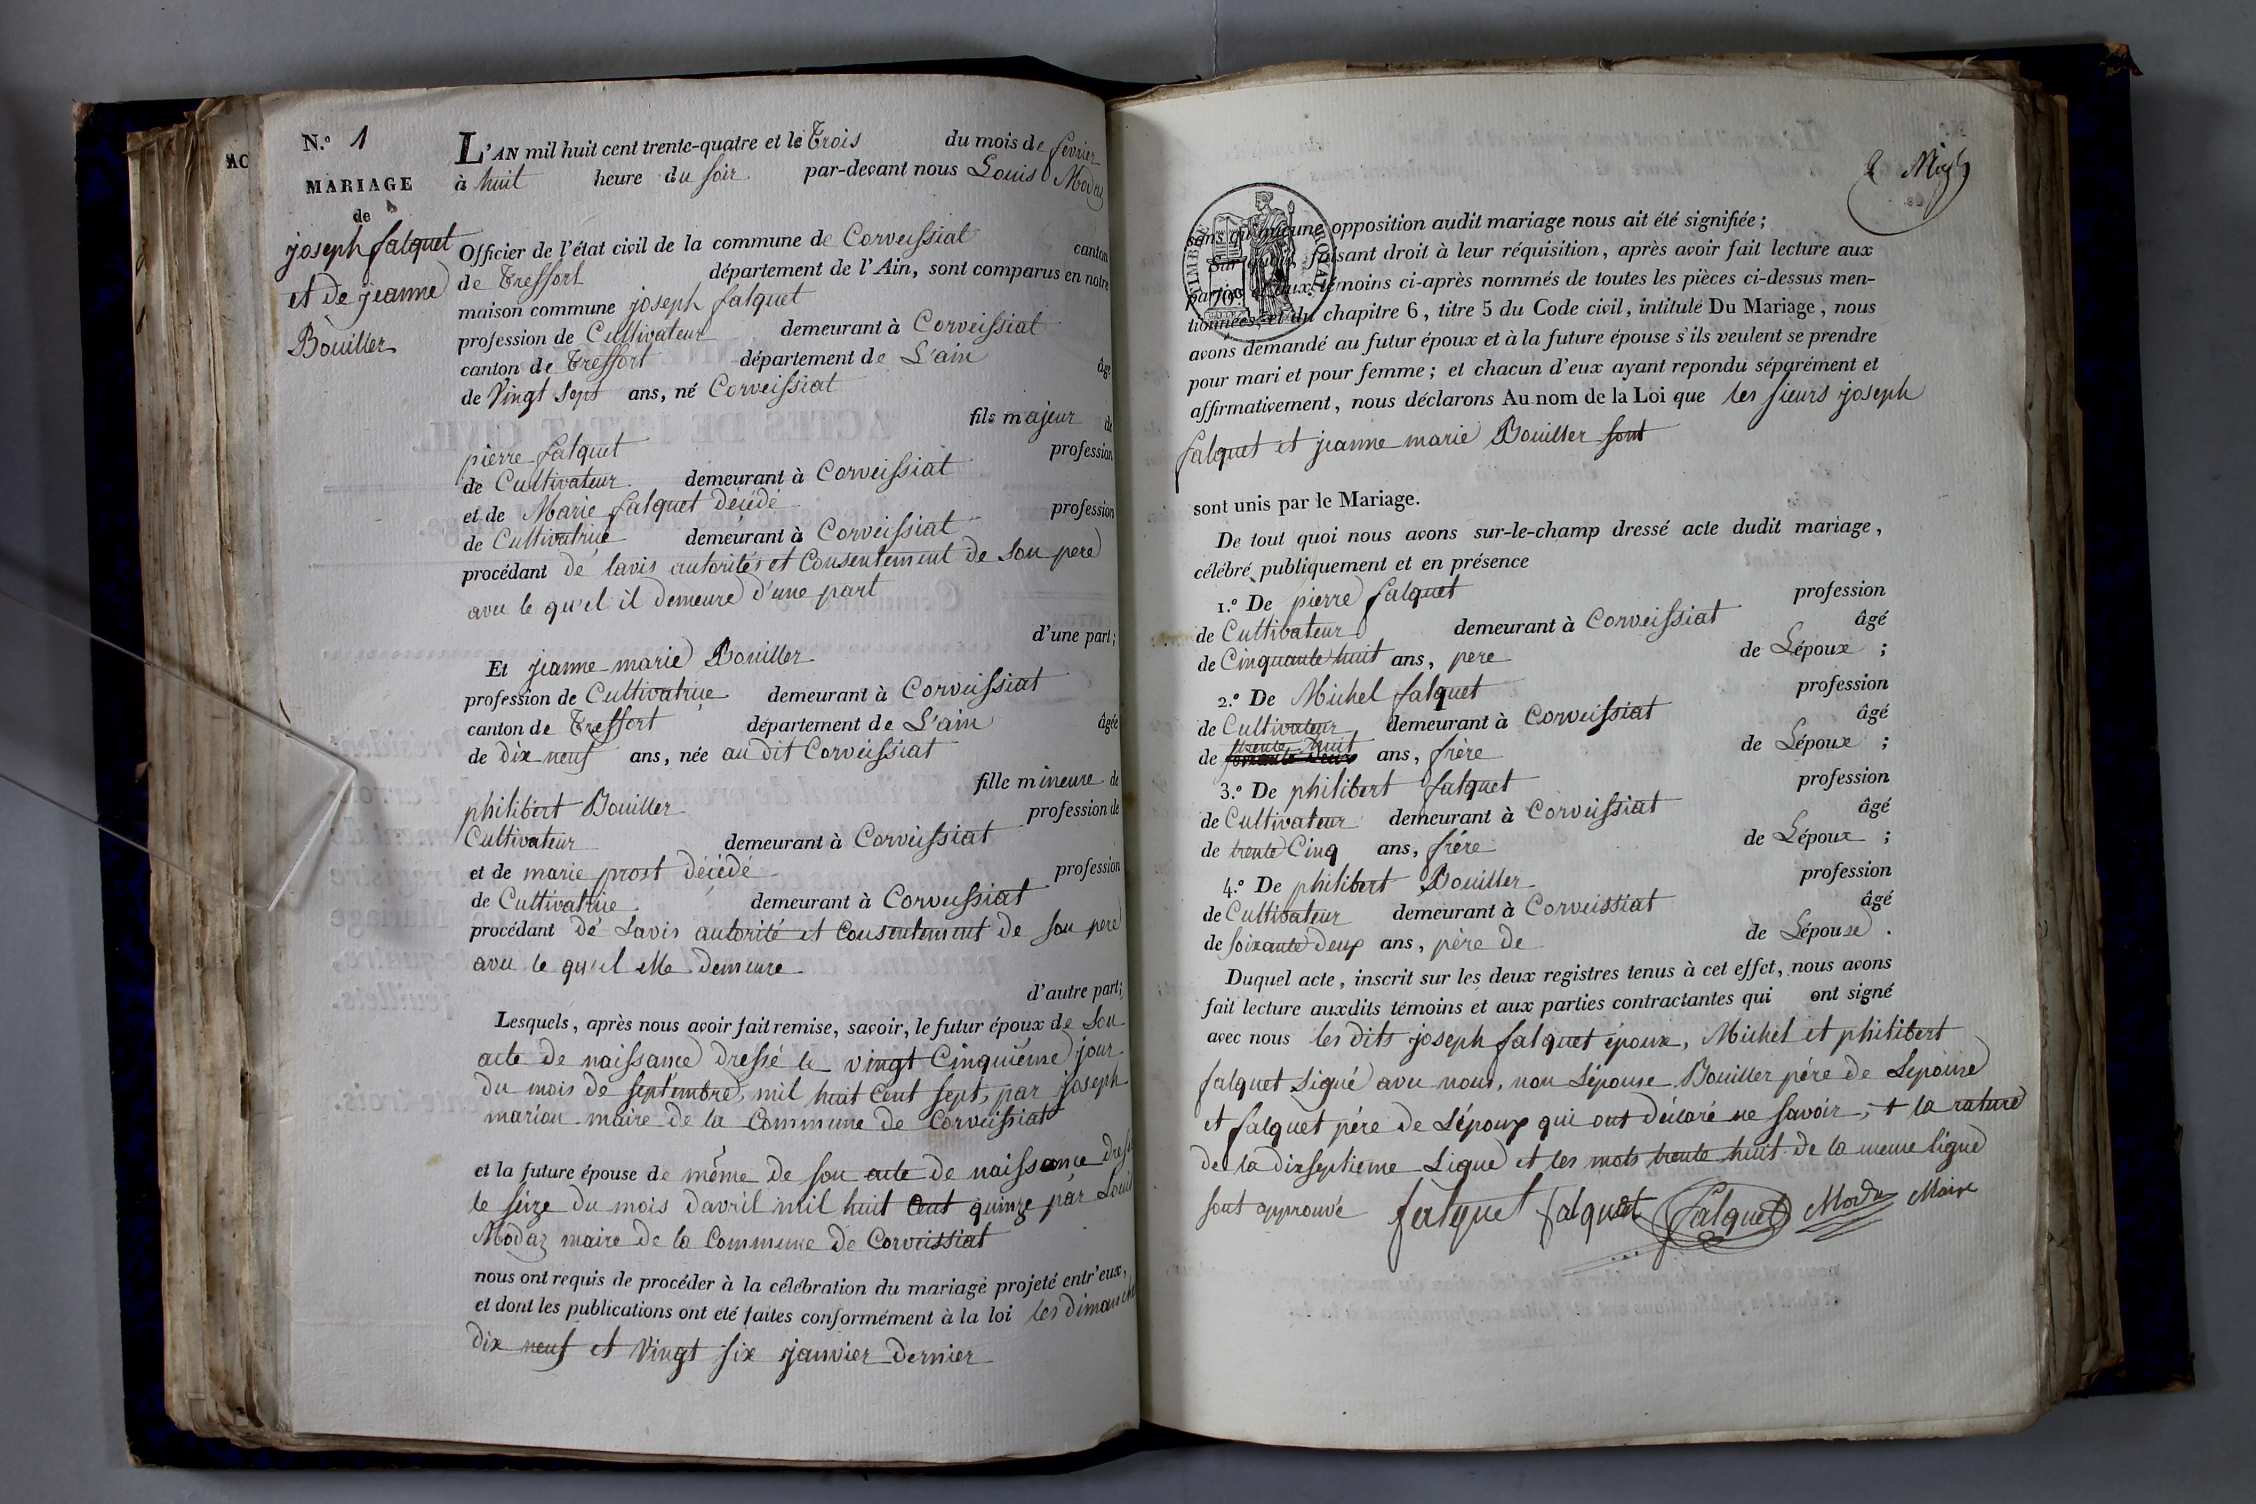 N.º 1
MARIAGE
de
joseph falquet
et de jeanne
Bouiller
L'AN mil huit cent trente-quatre et le Trois du mois de fevrier
à huit heure du soir par-devant nous Louis Modas
Officier de l'état civil de la commune de Corveissiat canton
de Treffort département de l'Ain, sont comparus en notre
maison commune joseph falquet
profession de Cultivateur demeurant à Corveissiat
canton de Treffort département de L'ain âgé
de Vingt Sept ans, né Corveissiat
fils majeur de
pierre falquet profession
de Cultivateur demeurant à Corveissiat
et de Marie falquet décédé profession
de Cultivatrice demeurant à Corveissiat
procédant de lavis autorités et Consentement de Son pere
avec le qu'el il demeure d'une part
d'une part;
Et jeanne marie Bouiller
profession de Cultivatrice demeurant à Corveissiat
canton de Treffort département de L'ain âgée
de dix neuf ans, née au dit Corveissiat
fille mineure de
philibert Bouiller profession de
Cultivateur demeurant à Corveissiat
et de marie prost décédé profession
de Cultivatrice demeurant à Corveissiat
procédant de Lavis autorité et Consentement de Son pere
avec le qu'el elle demeure
d'autre part;
Lesquels, après nous avoir fait remise, savoir, le futur époux de Son
acte de naissance dressé le vingt Cinquième jour
du mois de Septembre, mil huit Cent Sept, par joseph
marion maire de la Commune de Corveissiat
et la future épouse de même de Son acte de naissance
le Seize du mois d'avril mil huit Cent quinze par Louis
Modaz maire de la Commune de Corveissiat
nous ont requis de procéder à la célébration du mariage projeté entr'eux,
et dont les publications ont été faites conformément à la loi les dimanche
dix neuf et Vingt Six janvier dernier
sans qu'aucune opposition audit mariage nous ait été signifiée;
Sur quoi, faisant droit à leur réquisition, après avoir fait lecture aux
parties et aux témoins ci-après nommés de toutes les pièces ci-dessus men-
tionnées, et du chapitre 6, titre 5 du Code civil, intitulé Du Mariage, nous
avons demandé au futur époux et à la future épouse s'ils veulent se prendre
pour mari et pour femme; et chacun d'eux ayant repondu séparément et
affirmativement, nous déclarons Au nom de la Loi que les sieurs joseph
falquet et jeanne marie Bouiller sont
sont unis par le Mariage.
De tout quoi nous avons sur-le-champ dressé acte dudit mariage,
célébré publiquement et en présence
1.º De pierre falquet profession
de Cultivateur demeurant à Corveissiat âgé
de Cinquante huit ans, pere de Lépoux ;
2.º De Michel falquet profession
de Cultivateur demeurant à Corveissiat âgé
de trente huit ans, frère de Lépoux ;
3.º De philibert falquet profession
de Cultivateur demeurant à Corveissiat âgé
de trente Cinq ans, frére de Lépoux ;
4.º De philibert Bouiller profession
de Cultivateur demeurant à Corveissiat âgé
de Soixante deux ans, père de de Lépouse .
Duquel acte, inscrit sur les deux registres tenus à cet effet, nous avons
fait lecture auxdits témoins et aux parties contractantes qui ont signé
avec nous les dits joseph falquet époux, Michel et philibert
falquet Signé avec nous, non Lépouse Bouiller pére de Lépouse
et falquet pére de Lépoux qui ont déclaré ne Savoir, + la rature
de la dixseptieme Ligne et les mots trente huit de la meme ligne
sont approuvé falquet falquet falquet Modas Maire